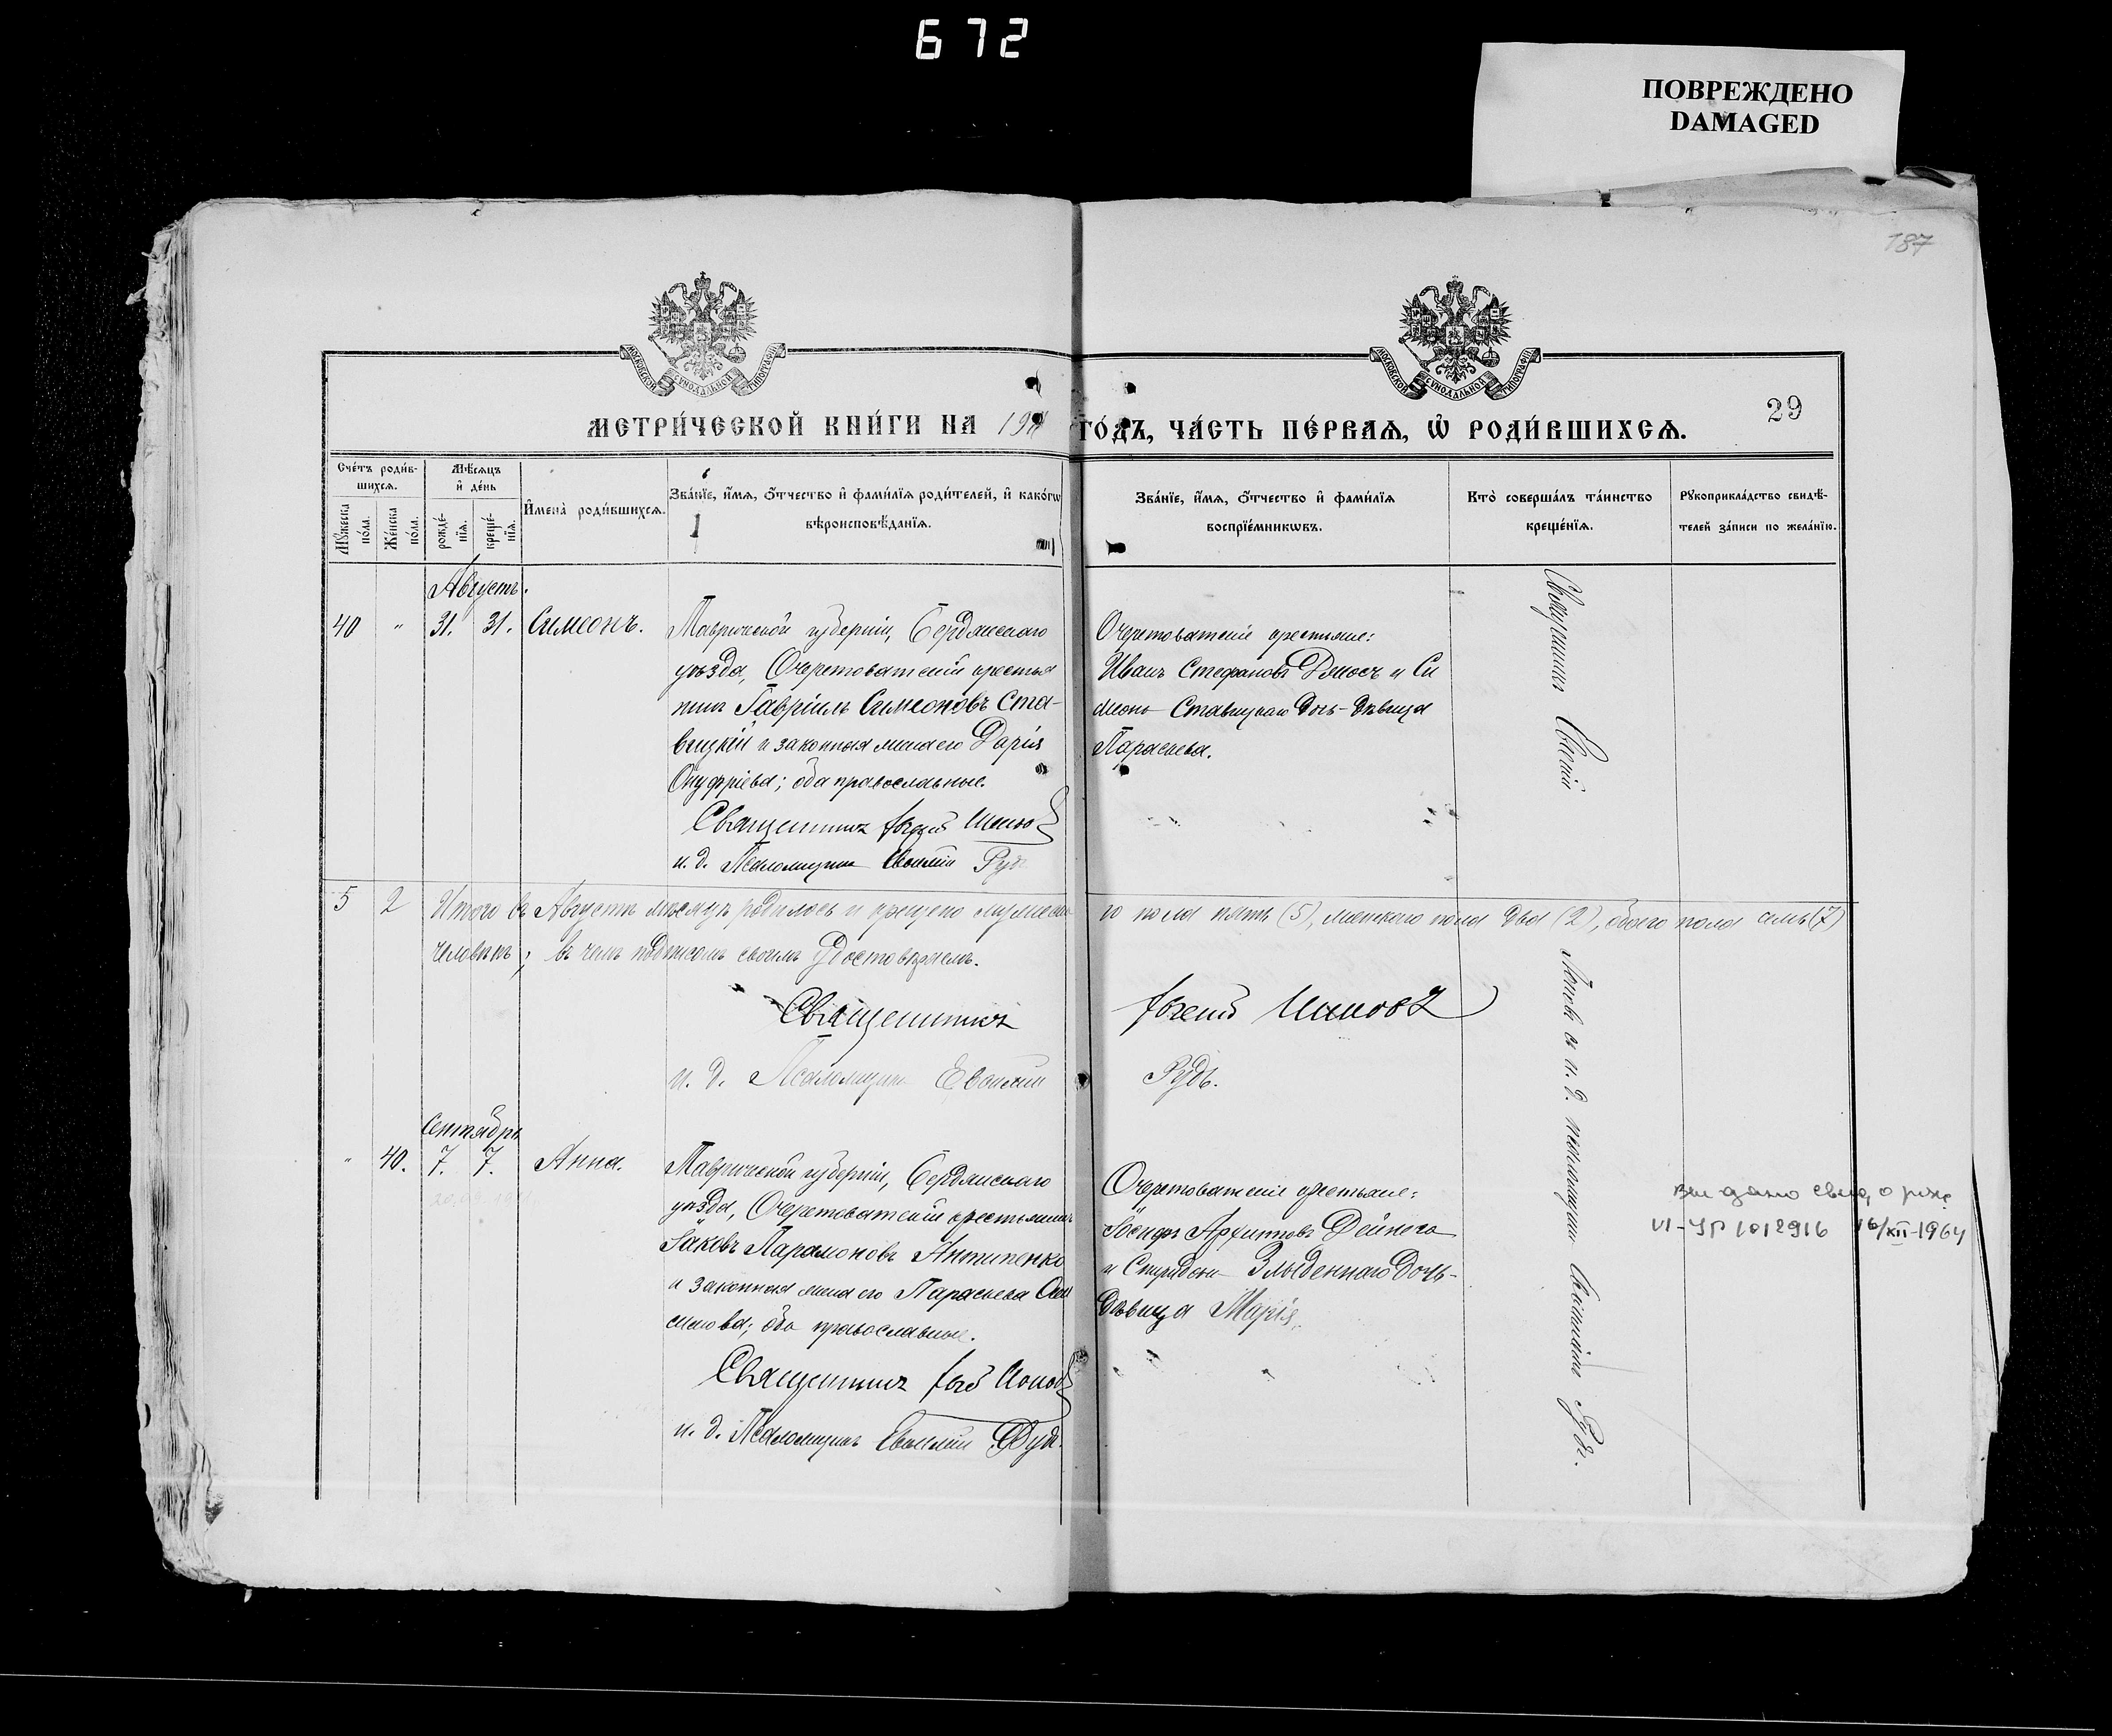 672
ПОВРЕЖДЕНО
DAMAGED
187
МОСКОВСКОЙ СѴНОДАЛЬНОЙ ТИПОГРАФІИ
МОСКОВСКОЙ СѴНОДАЛЬНОЙ ТИПОГРАФІИ
29
МЕТРИ́ЧЕСКОЙ КНИ́ГИ НА 191 ГО́ДЪ, ЧА́СТЬ ПЕ́РВАѦ, Ѡ҆ РОДИ́ВШИХСѦ.
Сче́тъ роди́в-
шихсѧ.
Мѣ́сѧцъ
и҆ де́нь
Мꙋ́жеска
по́ла.
Же́нска
по́ла.
рожде́-
нїѧ.
креще́-
нїѧ.
И҆мена̀ роди́вшихсѧ.
Зва́нїе, и҆́мѧ, о҆́тчество и҆ фами́лїѧ роди́телей, и҆ како́гѡ
вѣроисповѣ́данїѧ.
Зва́нїе, и҆́мѧ, о҆́тчество и҆ фами́лїѧ
воспрїе́мникѡвъ.
Кто̀ соверша́лъ та́инство
креще́нїѧ.
Рꙋкоприкла́дство свидѣ́-
телей за́писи по жела́нїю.
Августъ.
40 " 31. 31. Симеонъ.
Таврической губерніи, Бердянскаго
уѣзда, Очеретоватскій крестья
нинъ Гавріилъ Симеоновъ Ста-
вицкій и законная жена его Дарія
Онуфріева; оба православные.
Священникъ
и. д. Псаломщика Евфимій Рудь
Очеретоватскіе крестьяне:
Иванъ Стефановъ и Си
меона Ставицкаго дочь-дѣвица
Параскева.
Священникъ
5 2 Итого въ Августѣ мѣсяцѣ родилось и крещено мужеска
го пола пять (5), женскаго пола два (2), обоего пола семь (7)
человѣкъ; въ чемъ подписомъ своимъ удостовѣряемъ.
Священникъ
и. д. Псаломщика Евфимій
Рудь.
Сентябрь
" 40. 7. 7. Анна.
Таврической губерніи, Бердянскаго
уѣзда, Очеретоватскій крестьянинъ
Іаковъ Парамоновъ Антипенко
и законная жена его Параскева
симова; оба православные.
Священникъ
и. д. Псаломщика Евфимій Рудь.
Очеретоватскіе крестьяне:
Іосифъ Архиповъ Дейнега
и Спиридона дочь-
дѣвица Марія.
и. д. псаломщика Евфимій Рудь.
выдано свид. о рожд
VI-УР 1012916 16/XII-1964